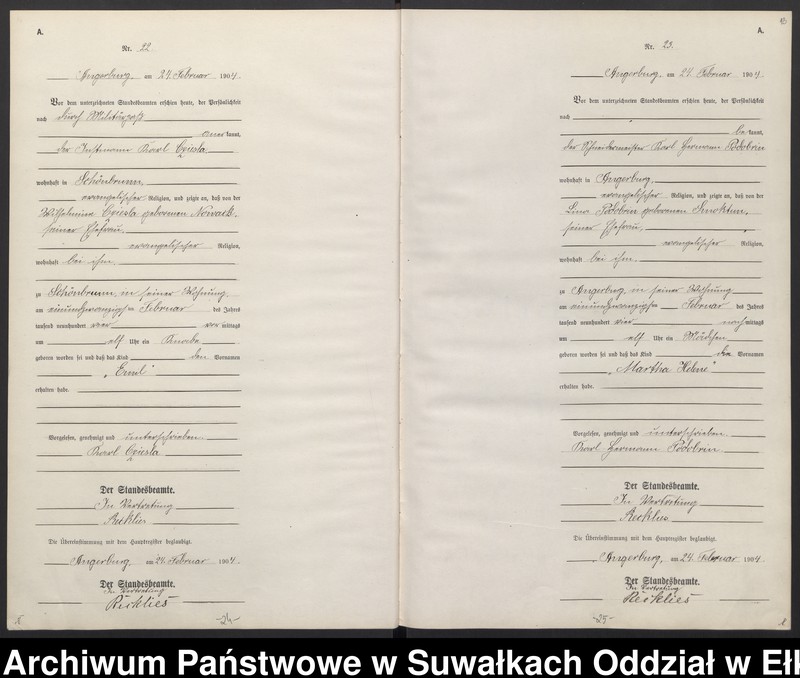 A.
Nr. 22.
Angerburg, am 24. Februar 1904.
Vor dem unterzeichneten Standesbeamten erschien heute, der Persönlichkeit
nach durch Militärpaß
anerkannt,
der Instmann Karl
wohnhaft in Schönbrunn,
evangelischer Religion, und zeigte an, daß von der
Wilhelmine geborenen Nowack,
seiner Ehefrau,
evangelischer Religion,
wohnhaft bei ihm,
zu Schönbrunn, in seiner Wohnung,
am einundzwanzigsten Februar des Jahres
tausend neunhundert vier vormittags
um elf Uhr ein Knabe
geboren worden sei und daß das Kind den Vornamen
„Emil“
erhalten habe.
Vorgelesen, genehmigt und unterschrieben
Karl
Der Standesbeamte.
In Vertretung
Recklies
Die Übereinstimmung mit dem Hauptregister beglaubigt.
Angerburg, am 24. Februar 1904.
Der Standesbeamte.
In Vertretung
Recklies
-24-
A.
Nr. 23.
Angerburg, am 24. Februar 1904.
Vor dem unterzeichneten Standesbeamten erschien heute, der Persönlichkeit
nach
bekannt,
der Schneidermeister Karl Hermann Podobrin
wohnhaft in Angerburg,
evangelischer Religion, und zeigte an, daß von der
Lina Podobrin geborenen
seiner Ehefrau,
evangelischer Religion,
wohnhaft bei ihm,
zu Angerburg, in seiner Wohnung
am einundzwanzigsten Februar des Jahres
tausend neunhundert vier nachmittags
um elf Uhr ein Mädchen
geboren worden sei und daß das Kind die Vornamen
„Martha Helene“
erhalten habe.
Vorgelesen, genehmigt und unterschrieben
Karl Hermann Podobrin
Der Standesbeamte.
In Vertretung
Recklies
Die Übereinstimmung mit dem Hauptregister beglaubigt.
Angerburg, am 24. Februar 1904.
Der Standesbeamte.
In Vertretung
Recklies
-25-
Archiwum Państwowe w Suwałkach Oddział w Ełk